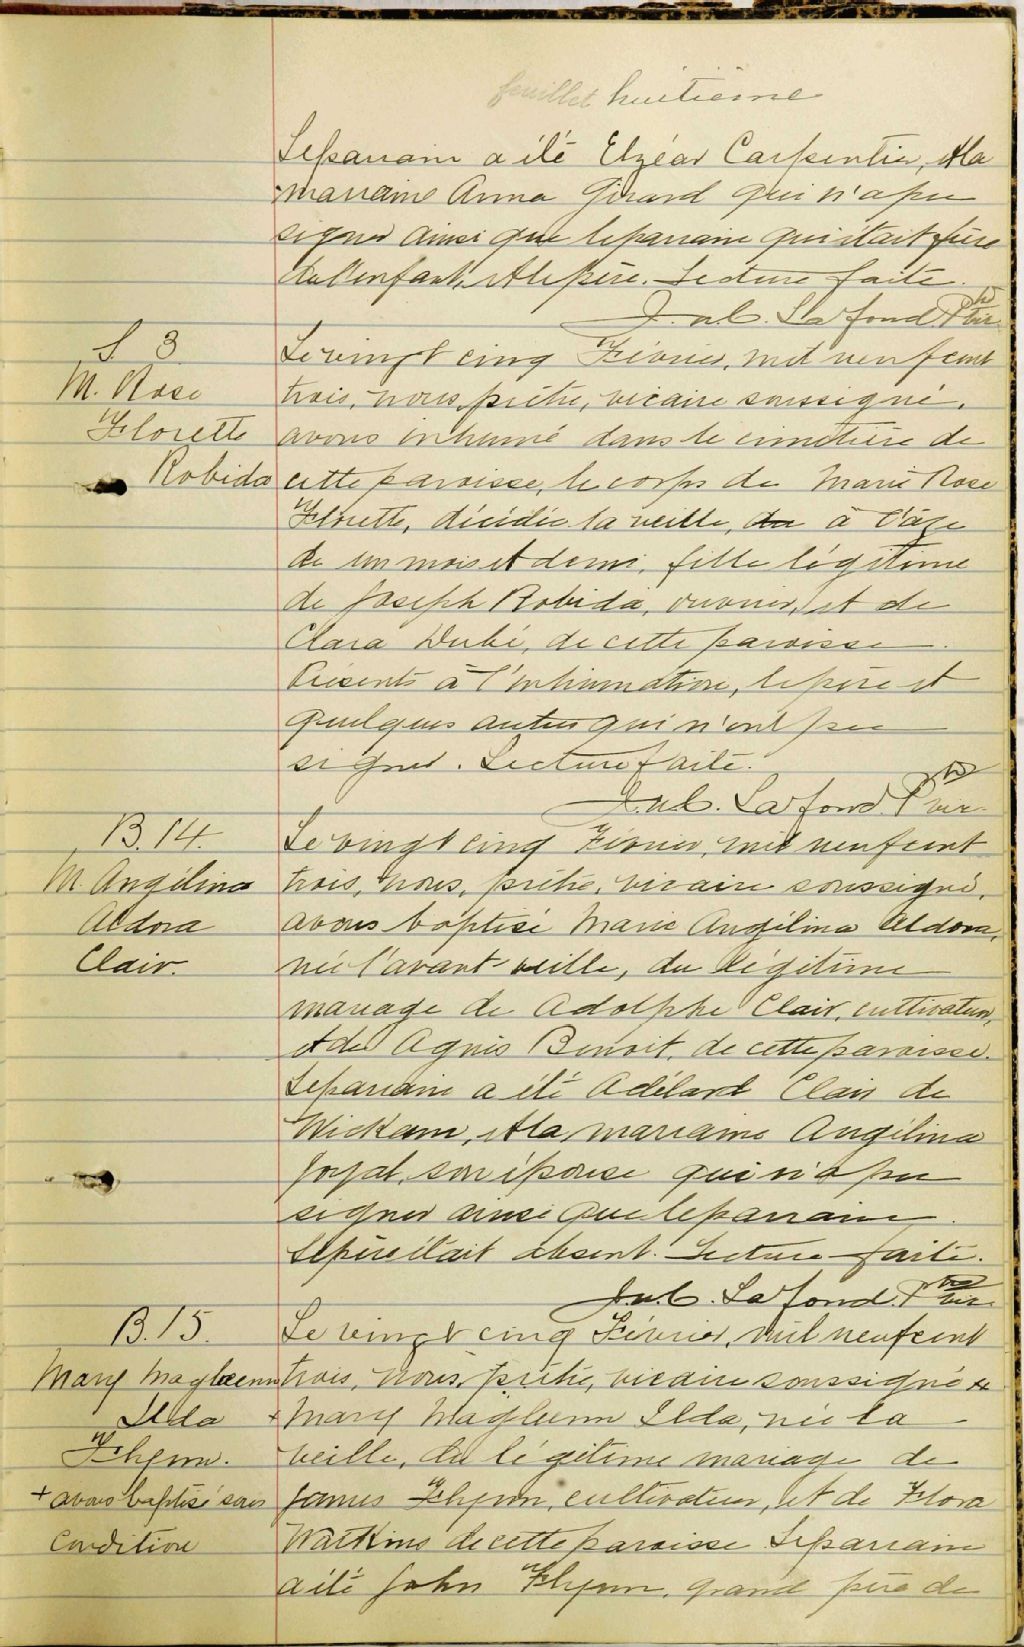 feuillet huitième
Le parrain a été Elzéar Carpentier, et la
marraine Anna Girard qui n'a pu
signer ainsi que le parrain qui était frère
de l'enfant, et le père. Lecture faite.
J. N. C. Lafond Ptre vic.
S. 3
M. Rose
Florette
Robida
Le vingt cinq Février, mil neuf cent
trois, nous, prêtre, vicaire soussigné,
avons inhumé dans le cimetière de
cette paroisse, le corps de Marie Rose
Florette, décédée la veille, à l'âge
de un mois et demi, fille légitime
de Joseph Robida, ouvrier, et de
Clara Dubé, de cette paroisse.
Présents à l'inhumation, le père et
quelques autres qui n'ont pu
signer. Lecture faite.
J. N. C. Lafond. Ptre vic.
B. 14.
M. Angélina
Aldora
Clair.
Le vingt cinq Février, mil neuf cent
trois, nous, prêtre, vicaire soussigné,
avons baptisé Marie Angélina Aldora,
née l'avant veille, du légitime
mariage de Adolphe Clair, cultivateur,
et de Agnès Benoit, de cette paroisse.
Le parrain a été Adélard Clair de
Wickam, et la marraine Angélina
Joyal, son épouse qui n'a pu
signer ainsi que le parrain.
Le père était absent. Lecture faite.
J. N. C. Lafond. Ptre vic.
B. 15.
Mary
Ilda
Flynn.
+ avons baptisé sous
condition
Le vingt cinq Février, mil neuf cent
trois, nous, prêtre, vicaire soussigné +
+ Mary Ilda, née la
veille, du légitime mariage de
James Flynn, cultivateur, et de Flora
Watkins de cette paroisse. Le parrain
a été John Flynn, grand père de